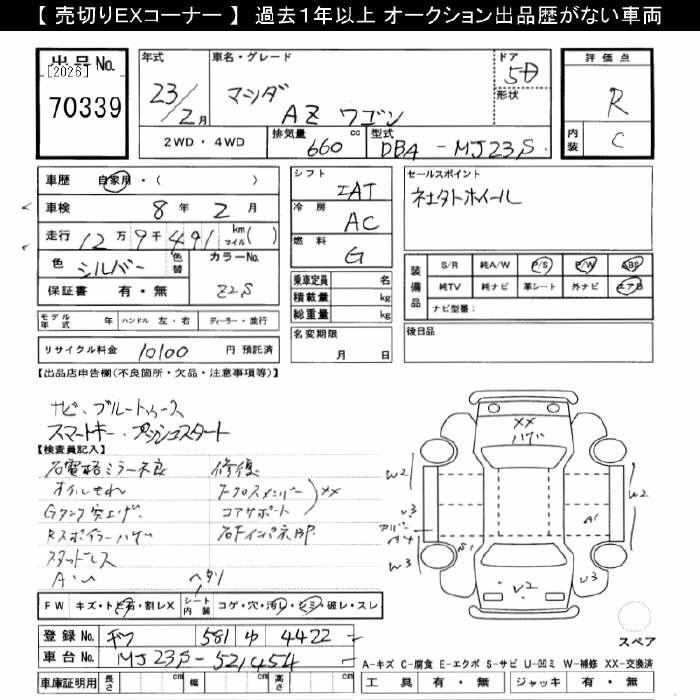 【 売切りEXコーナー 】 過去1年以上 オークション出品歴がない車両
出品No.
[2026]
70339
年式
23/2月
車名・グレード
マツダ
AZ ワゴン
ドア
5D
形状
2WD・4WD
排気量 660 cc
型式 DBA - MJ23S
評価点
R
内装 C
車歴 自家用・( )
車検 8年 2月
走行 12万9千491 km マイル( )
色 シルバー 色替
カラーNo. Z2S
保証書 有・無
モデル年式 年 ハンドル 左・右 ディーラー・並行
リサイクル料金 10100 円 預託済
シフト IAT
冷房 AC
燃料 G
乗車定員 名
積載量 kg
総重量 kg
名変期限
月 日
セールスポイント
社外ホイール
装備品
S/R 純A/W P/S P/W ABS
純TV 純ナビ 革シート 外ナビ エアB
ナビ型番:
後日品
【出品店申告欄(不良箇所・欠品・注意事項等)】
ナビ、ブルートゥース
スマートキー・プッシュスタート
【検査員記入】
右電格ミラー不良
オイルもれ
Gタンク突上げ
Rスポイラーハゲ
スタッドレス
A・U
修復
F クロスメンバー
コアサポート
XX
右Fインパネ部P
ヘタリ
FW キズ・トビ石・割レX
シート内装 コゲ・穴・汚レ・シミ・破レ・スレ
登録No. 581 4422
車台No. MJ23S-521454
車庫証明用 長さ cm 幅 cm 高さ cm
XX
ハゲ
W2
U3
W3
S1
A1
W2
U3
U2
スペア
A-キズ C-腐食 E-エクボ S-サビ U-凹ミ W-補修 XX-交換済
工具 有・無 ジャッキ 有・無